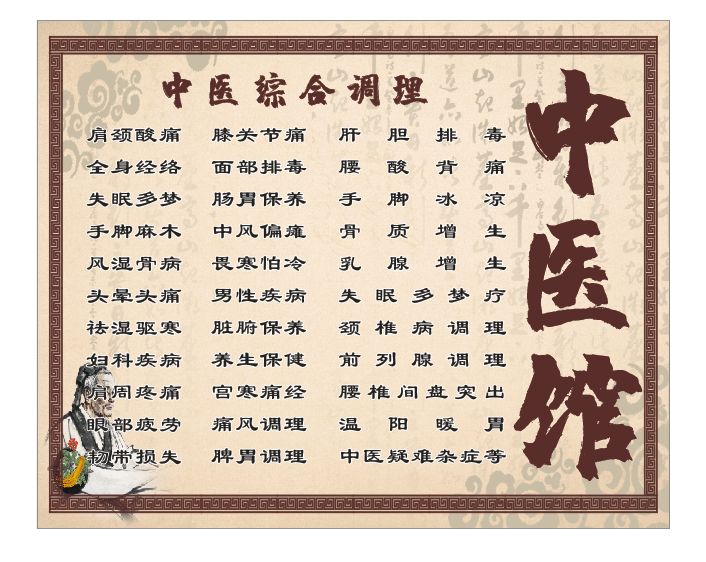 中医综合调理
肩颈酸痛 膝关节痛 肝胆排毒
全身经络 面部排毒 腰酸背痛
失眠多梦 肠胃保养 手脚冰凉
手脚麻木 中风偏瘫 骨质增生
风湿骨病 畏寒怕冷 乳腺增生
头晕头痛 男性疾病 失眠多梦疗
祛湿驱寒 脏腑保养 颈椎病调理
妇科疾病 养生保健 前列腺调理
肩周疼痛 宫寒痛经 腰椎间盘突出
眼部疲劳 痛风调理 温阳暖胃
韧带损失 脾胃调理 中医疑难杂症等
中医馆